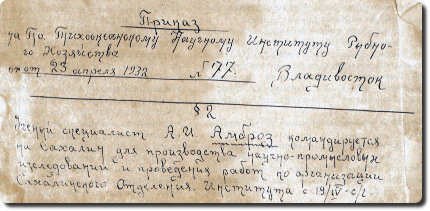 Приказ
по Тихоокеанскому Научному Институту Рыбно-
го Хозяйства
от 23 апреля 1932 № 77. Владивосток
§ 2
Ученый специалист А.И. Амброз командируется
на Сахалин для производства научно-промысловых
изследований и проведения работ по организации
Сахалинского Отделения Института с 19/IV-с/г.